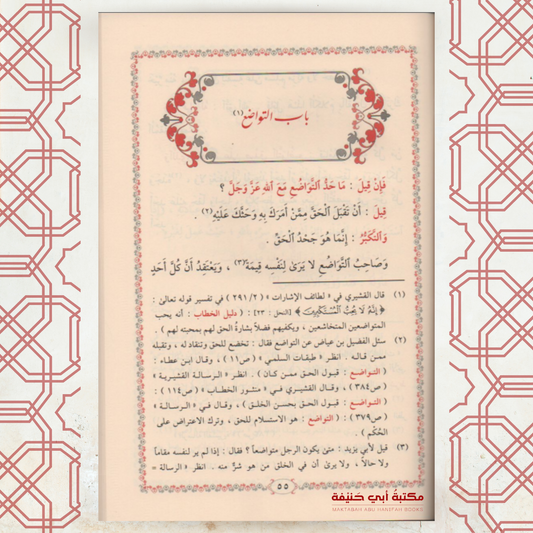 باب التواضع (١)
فَإِنْ قِيلَ : مَا حَدُّ ٱلتَّوَاضُعِ مَعَ ٱللهِ عَزَّ وَجَلَّ ؟
قِيلَ : أَنْ تَقْبَلَ ٱلْحَقَّ مِمَّنْ أَمَرَكَ بِهِ وَحَثَّكَ عَلَيْهِ (٢) .
وَٱلتَّكَبُّرُ : إِنَّمَا هُوَ جَحْدُ ٱلْحَقِّ .
وَصَاحِبُ ٱلتَّوَاضُعِ لا يَرَىٰ لِنَفْسِهِ قِيمَةً (٣) ، وَيَعْتَقِدُ أَنَّ كُلَّ أَحَدٍ
(١) قال القشيري في « لطائف الإشارات » ( ٢٩١/٢ ) في تفسير قوله تعالىٰ :
﴿ إِنَّهُ لَا يُحِبُّ الْمُسْتَكْبِرِينَ ﴾ [النحل : ٢٣] : ( دليل الخطاب : أنه يحب
المتواضعين المتخاشعين ، ويكفيهم فضلاً بشارةُ الحق لهم بمحبته لهم ) .
(٢) سئل الفضيل بن عياض عن التواضع فقال : تخضع للحق وتنقاد له ، وتقبله
ممن قاله . انظر « طبقات السلمي » ( ص١١ ) ، وقال ابن عطاء :
( التواضع : قبول الحق ممن كان ) . انظر « الرسالة القشيرية »
( ص٣٨٤ ) ، وقال القشيري في « منثور الخطاب » ( ص١١٤ ) :
( التواضع : قبول الحق بحسن الخلق ) ، وقال في « الرسالة »
( ص٣٧٩ ) : ( التواضع : هو الاستسلام للحق ، وترك الاعتراض على
الحُكْم ) .
(٣) قيل لأبي يزيد : متىٰ يكون الرجل متواضعاً ؟ فقال : إذا لم ير لنفسه مقاماً
ولا حالاً ، ولا يرىٰ أن في الخلق من هو شرٌّ منه . انظر « الرسالة »
٥٥
مكتبة أبي حنيفة
MAKTABAH ABU HANIFAH BOOKS